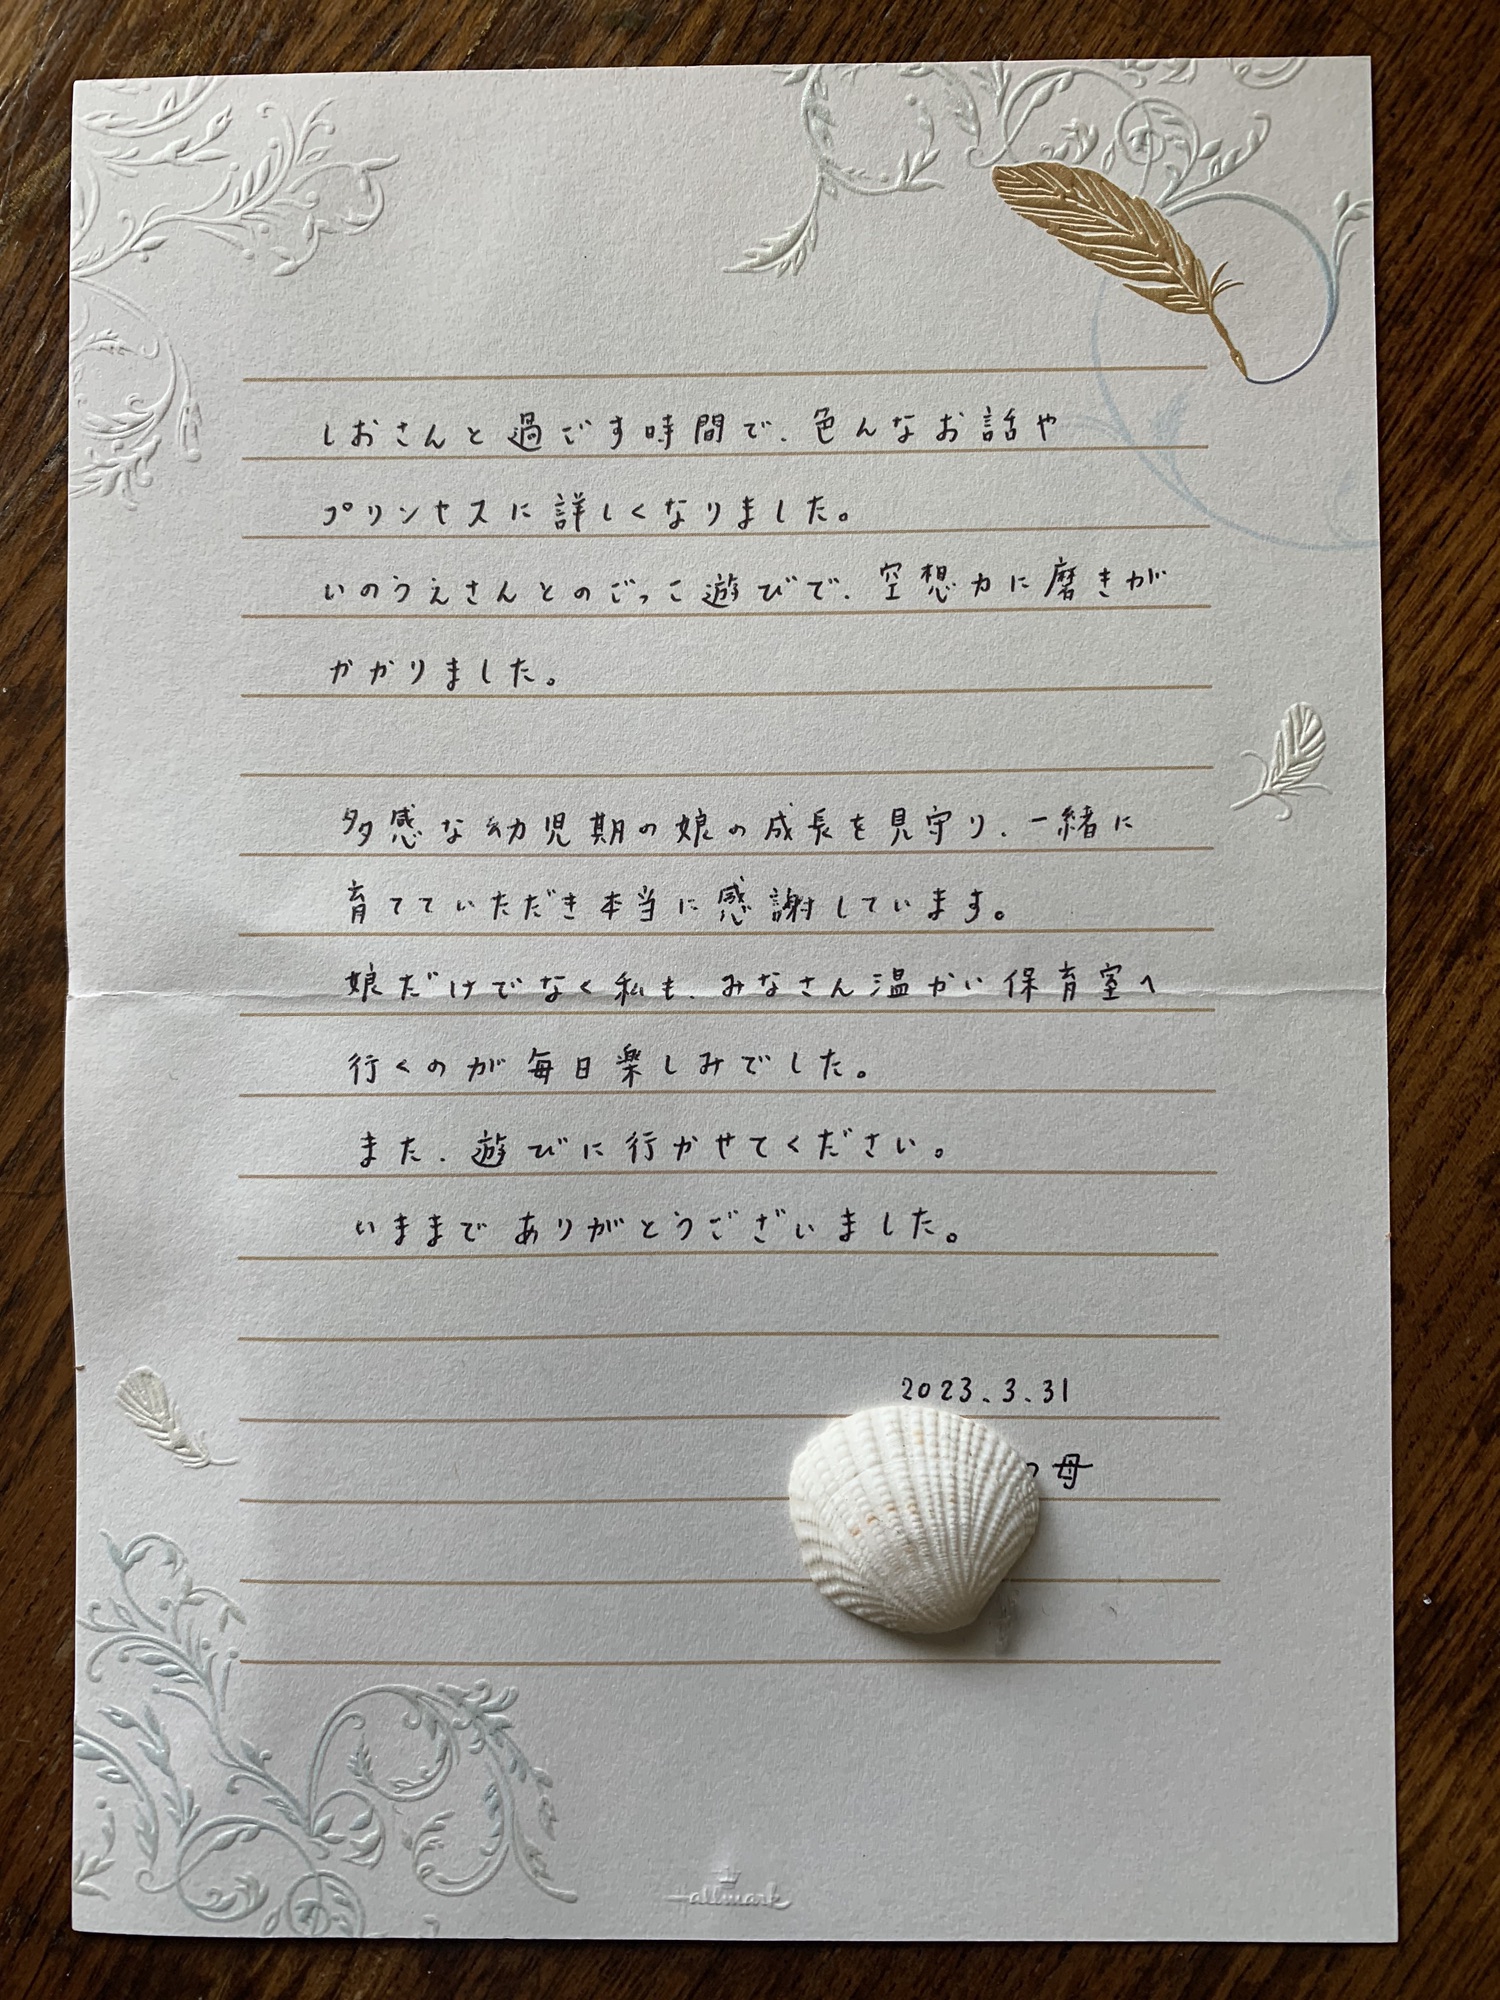 しおさんと過ごす時間で、色んなお話や
プリンセスに詳しくなりました。
いのうえさんとのごっこ遊びで、空想力に磨きが
かかりました。
多感な幼児期の娘の成長を見守り、一緒に
育てていただき本当に感謝しています。
娘だけでなく私も、みなさん温かい保育室へ
行くのが毎日楽しみでした。
また、遊びに行かせてください。
いままでありがとうございました。
2023.3.31
の母
Hallmark